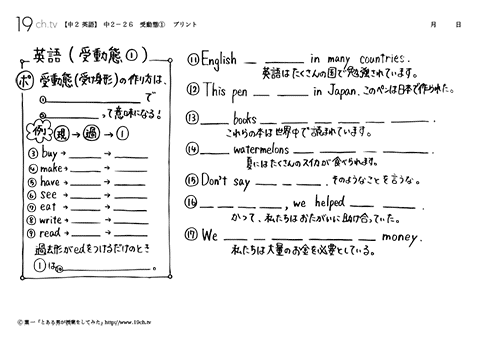 19ch.tv 【中2 英語】 中2-26 受動態① プリント 月 日
英語(受動態①)
ポ 受動態(受け身形)の作り方は、
①__________で
②__________って意味になる!
例 現→過→①
③ buy → ____ → ____
④ make → ____ → ____
⑤ have → ____ → ____
⑥ see → ____ → ____
⑦ eat → ____ → ____
⑧ write → ____ → ____
⑨ read → ____ → ____
過去形がedをつけるだけのとき
①は⑩__________。
⑪ English ____ ____ in many countries.
英語はたくさんの国で勉強されています。
⑫ This pen ____ ____ in Japan. このペンは日本で作られた。
⑬ ____ books ____ ____ ____ ____ ____.
これらの本は世界中で読まれています。
⑭ ____ watermelons ____ ____ ____ ____.
夏にはたくさんのスイカが食べられます。
⑮ Don't say ____ ____ ____. そのようなことを言うな。
⑯ ____ ____ ____ ____, we helped ____ ____.
かつて、私たちはおたがいに助け合っていた。
⑰ We ____ ____ ____ ____ ____ money.
私たちは大量のお金を必要としている。
© 葉一「とある男が授業をしてみた」http://www.19ch.tv